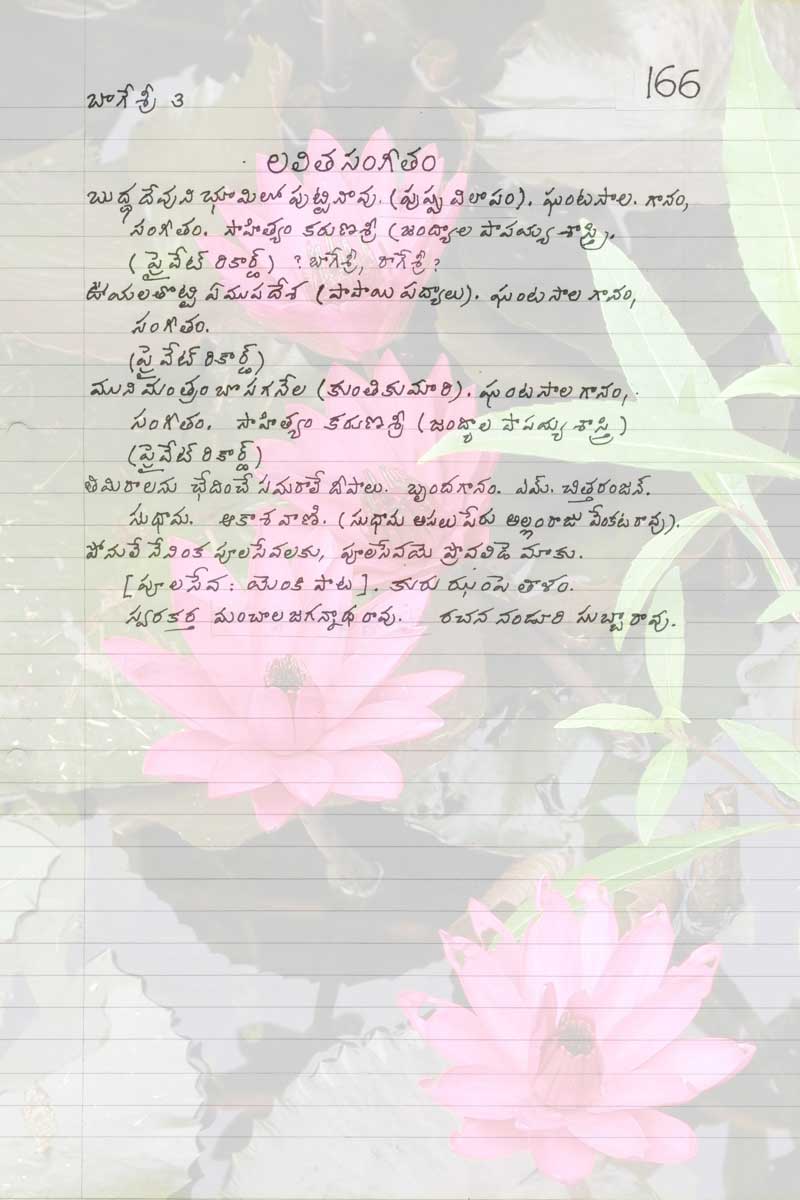 166
బాగేశ్రీ 3
లలితసంగీతం
బుద్ధదేవుని భూమిలో పుట్టినావు. (పుష్ప విలాపం). ఘంటసాల. గానం,
సంగీతం. సాహిత్యం కరుణశ్రీ (జంధ్యాల పాపయ్య శాస్త్రి.
(ప్రైవేట్ రికార్డ్) ? బాగేశ్రీ, రాగేశ్రీ ?
ఊయలతొట్టి ఏముపదేశ (పాపాయి పద్యాలు). ఘంటసాల గానం,
సంగీతం.
(ప్రైవేట్ రికార్డ్)
ముని మంత్రం బొసగనేల (కుంతికుమారి). ఘంటసాల గానం,
సంగీతం. సాహిత్యం కరుణశ్రీ (జంధ్యాల పాపయ్య శాస్త్రి)
(ప్రైవేట్ రికార్డ్)
తిమిరాలను ఛేదించే సమరాలే దీపాలు. బృందగానం. ఎమ్. చిత్తరంజన్.
సుధామ. ఆకాశవాణి. (సుధామ అసలు పేరు అల్లంరాజు వేంకటరావు).
పోనులే నేనింక పూలసేవలకు, పూలసేవయె ప్రొవలిడె మాకు.
[పూలసేవ: యెంకి పాట]. కురు ఝంపె తాళం.
స్వరకర్త మంచాల జగన్నాధరావు. రచన నండూరి సుబ్బారావు.